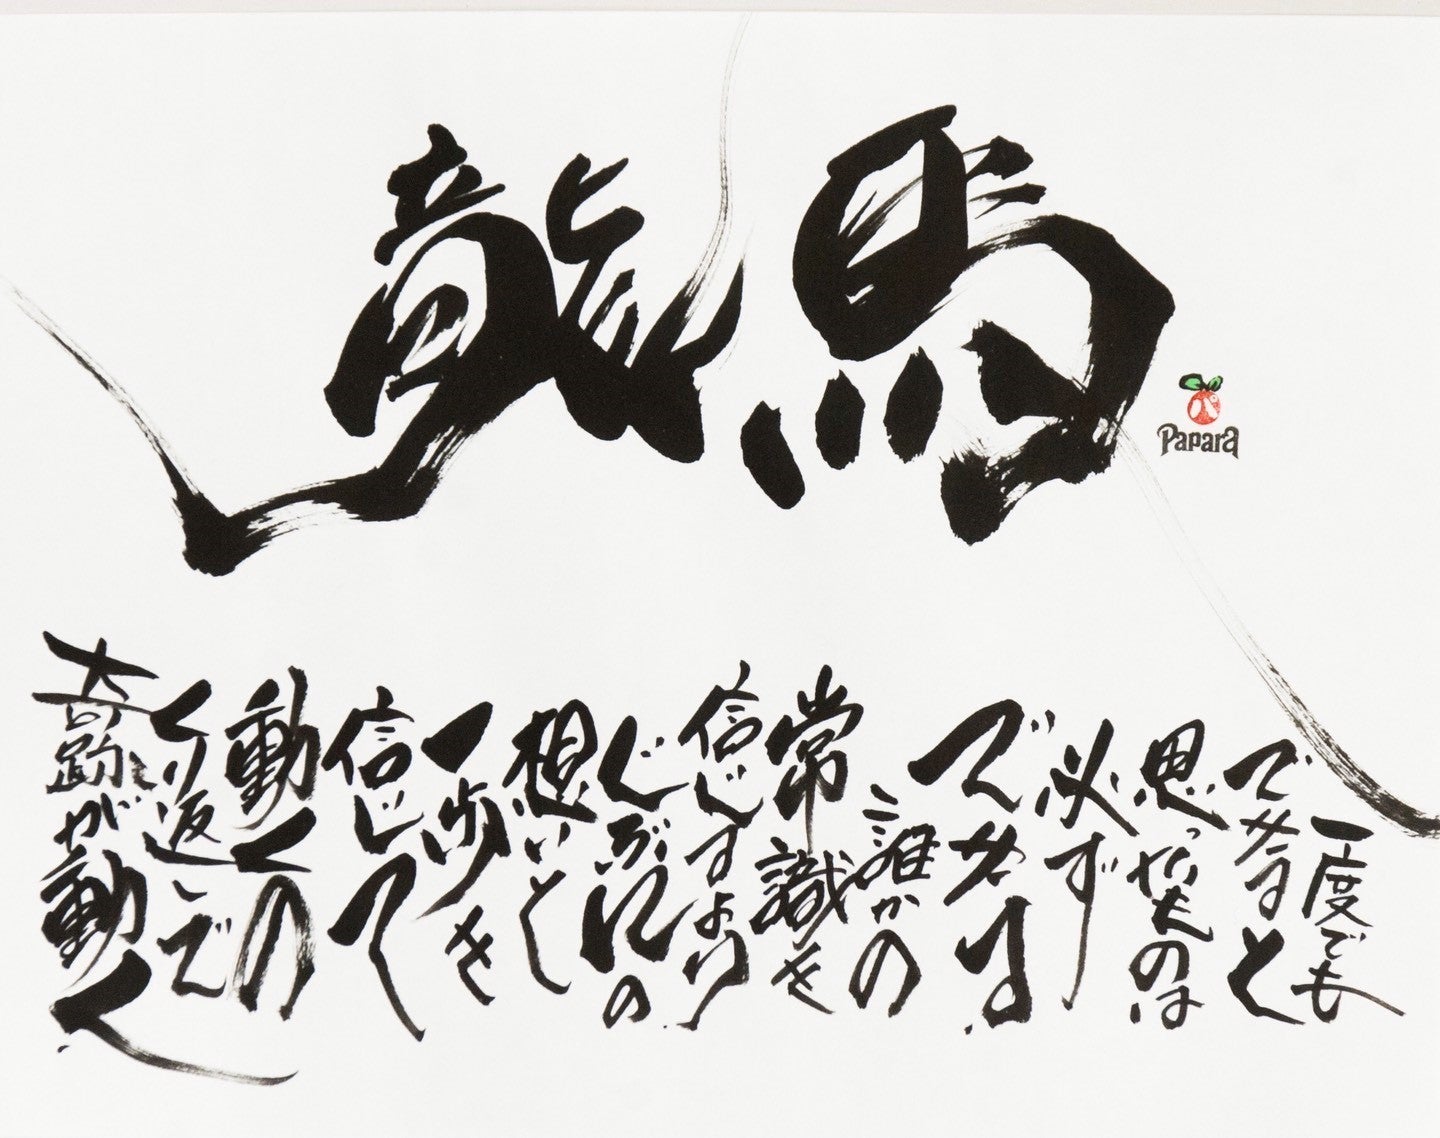 龍馬
Papara
一度でも
できると
思ったものは
必ず
できる
誰かの
常識を
信じるより
じぶんの
想いと
一歩を
信じて
動くの
くり返しで
奇跡が動く